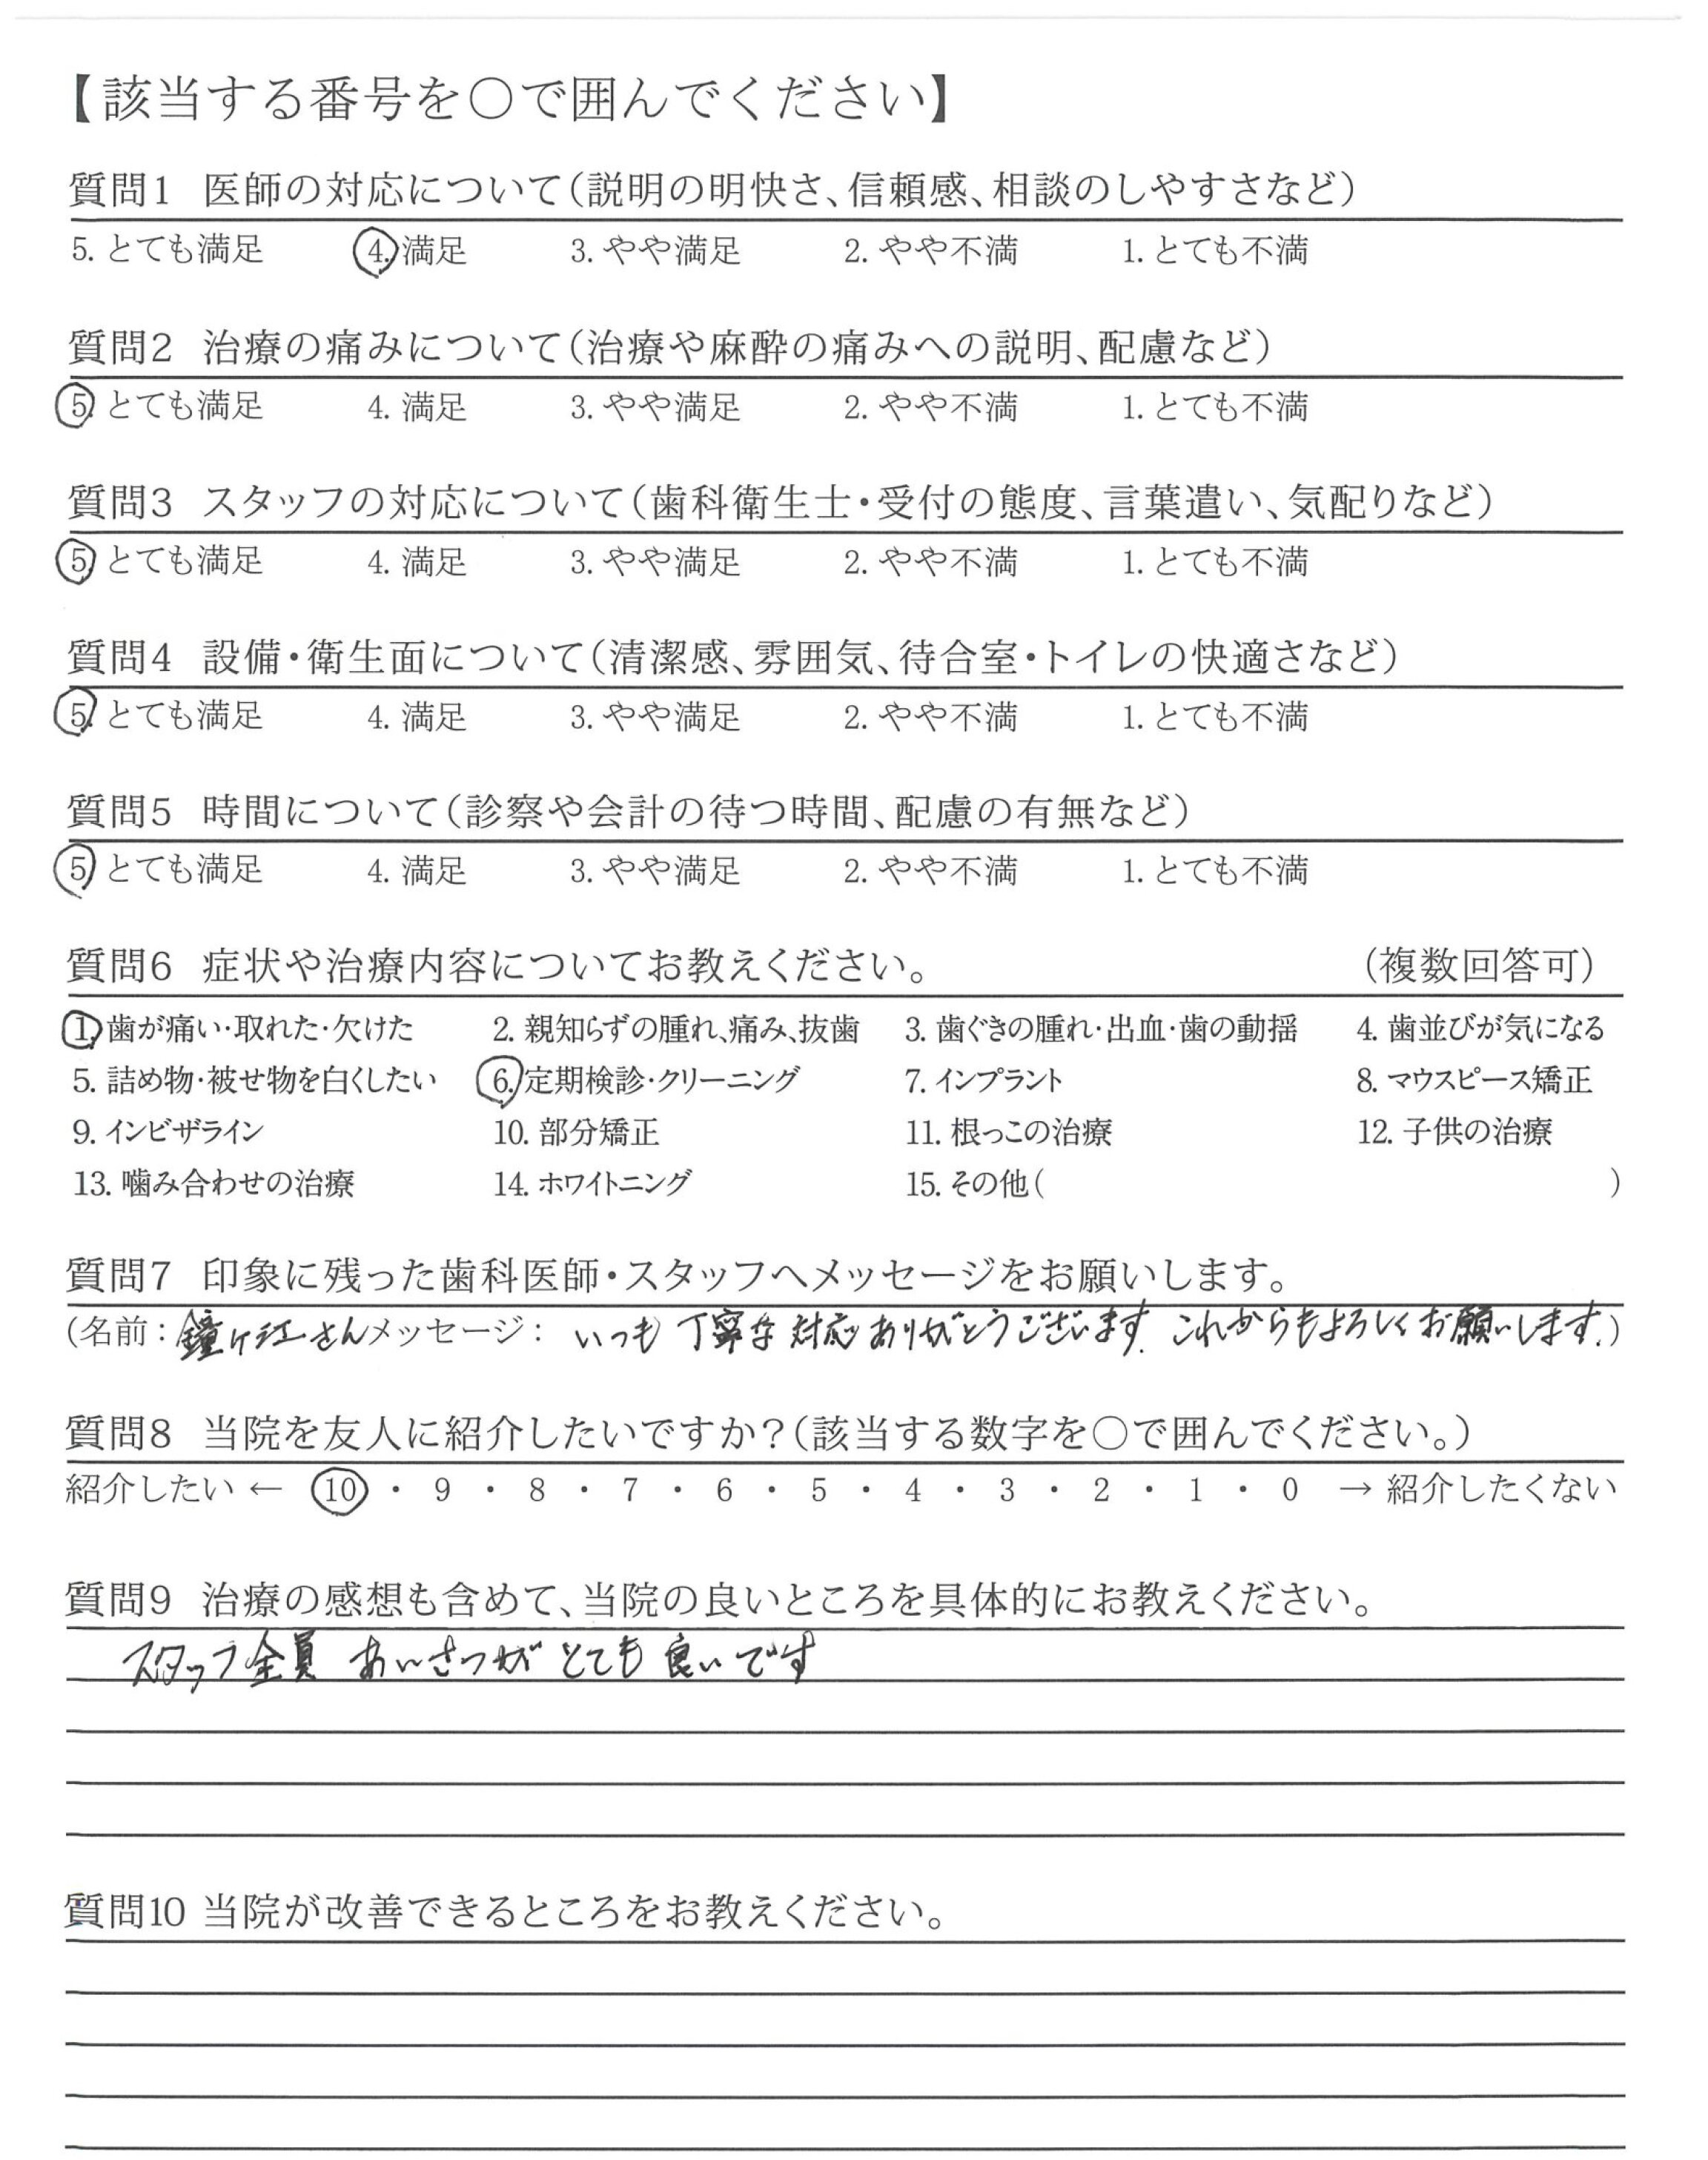 【該当する番号を〇で囲んでください】
質問1 医師の対応について(説明の明快さ、信頼感、相談のしやすさなど)
5. とても満足 4. 満足 3. やや満足 2. やや不満 1. とても不満
質問2 治療の痛みについて(治療や麻酔の痛みへの説明、配慮など)
5. とても満足 4. 満足 3. やや満足 2. やや不満 1. とても不満
質問3 スタッフの対応について(歯科衛生士・受付の態度、言葉遣い、気配りなど)
5. とても満足 4. 満足 3. やや満足 2. やや不満 1. とても不満
質問4 設備・衛生面について(清潔感、雰囲気、待合室・トイレの快適さなど)
5. とても満足 4. 満足 3. やや満足 2. やや不満 1. とても不満
質問5 時間について(診察や会計の待つ時間、配慮の有無など)
5. とても満足 4. 満足 3. やや満足 2. やや不満 1. とても不満
質問6 症状や治療内容についてお教えください。 (複数回答可)
1. 歯が痛い・取れた・欠けた 2. 親知らずの腫れ、痛み、抜歯 3. 歯ぐきの腫れ・出血・歯の動揺 4. 歯並びが気になる
5. 詰め物・被せ物を白くしたい 6. 定期検診・クリーニング 7. インプラント 8. マウスピース矯正
9. インビザライン 10. 部分矯正 11. 根っこの治療 12. 子供の治療
13. 噛み合わせの治療 14. ホワイトニング 15. その他( )
質問7 印象に残った歯科医師・スタッフへメッセージをお願いします。
(名前: 鐘ヶ江さん メッセージ: いつも丁寧な対応ありがとうございます。これからもよろしくお願いします。)
質問8 当院を友人に紹介したいですか?(該当する数字を〇で囲んでください。)
紹介したい ← 10 ・ 9 ・ 8 ・ 7 ・ 6 ・ 5 ・ 4 ・ 3 ・ 2 ・ 1 ・ 0 → 紹介したくない
質問9 治療の感想も含めて、当院の良いところを具体的にお教えください。
スタッフ全員 あいさつが とても 良いです
質問10 当院が改善できるところをお教えください。